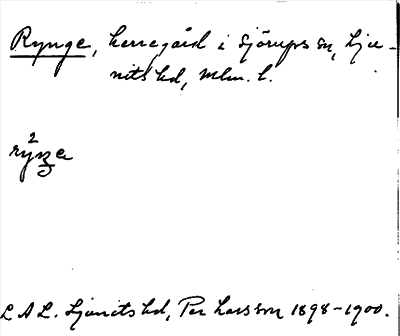 Rynge, herregård i Sjörups sn, Lju-
nits hd, Mlm. l.
rȳ²ŋe
L A L. Ljunits hd, Per Larsson 1898-1900.